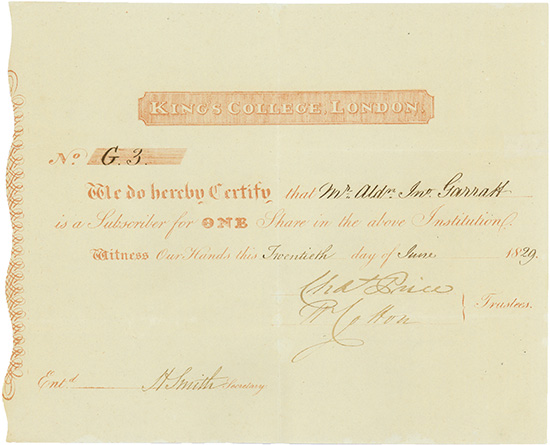 KINGS COLLEGE, LONDON.
No G. 3.
We do hereby Certify that Mr. Aldn. Jno. Garratt
is a Subscriber for ONE Share in the above Institution.
Witness Our Hands this Twentieth day of June 1829
Chas Price
W. Cotton
Trustees.
Entd. H Smith Secretary